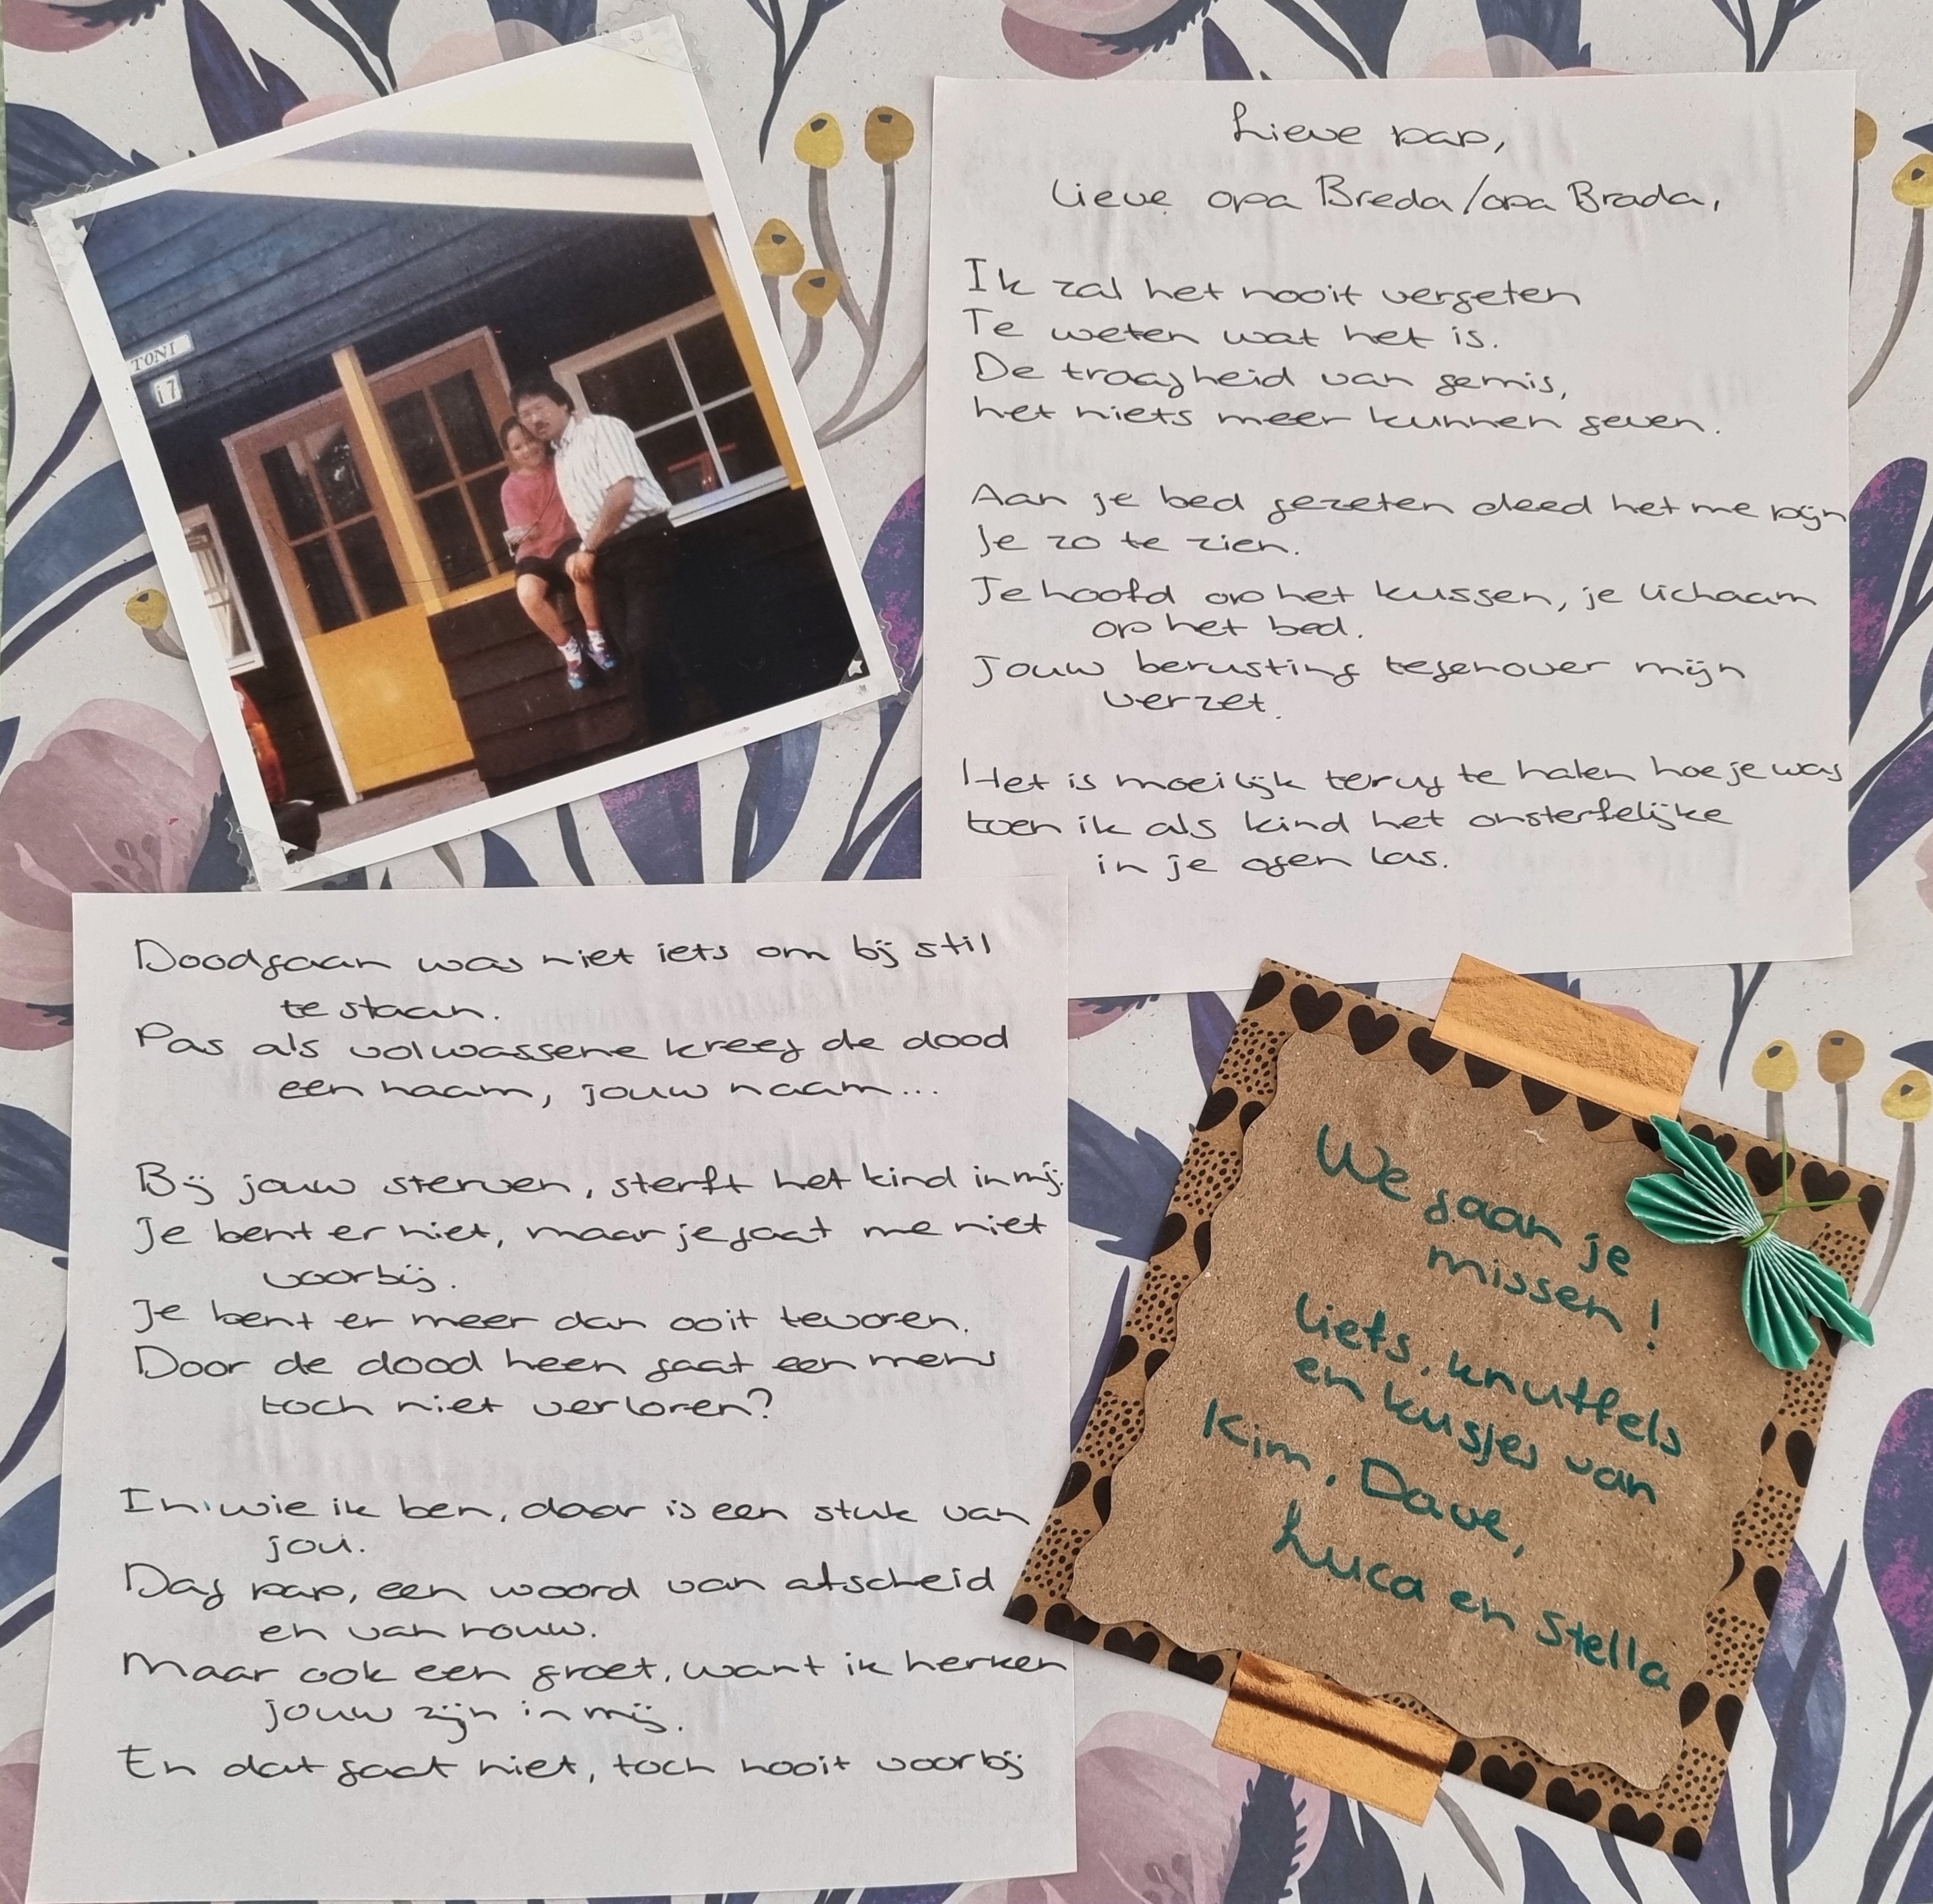 TONI
17
Lieve pap,
Lieve opa Breda/opa Brada,
Ik zal het nooit vergeten
Te weten wat het is.
De traagheid van gemis,
het niets meer kunnen geven.
Aan je bed gezeten deed het me pijn
Je zo te zien.
Je hoofd op het kussen, je lichaam
op het bed.
Jouw berusting tegenover mijn
verzet.
Het is moeilijk terug te halen hoe je was
toen ik als kind het onsterfelijke
in je ogen las.
Doodgaan was niet iets om bij stil
te staan.
Pas als volwassene kreeg de dood
een naam, jouw naam...
Bij jouw sterven, sterft het kind in mij.
Je bent er niet, maar je gaat me niet
voorbij.
Je bent er meer dan ooit tevoren.
Door de dood heen gaat een mens
toch niet verloren?
In wie ik ben, daar is een stuk van
jou.
Dag pap, een woord van afscheid
en van rouw.
Maar ook een groet, want ik herken
jouw zijn in mij.
En dat gaat niet, toch nooit voorbij
We gaan je
missen!
Liefs, knuffels
en kusjes van
Kim, Dave,
Luca en Stella